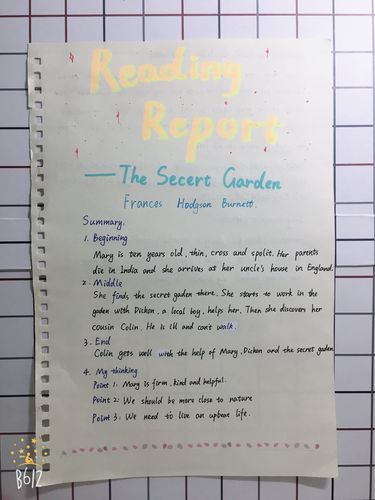 Reading
Report
— The Secert Garden
Frances Hodgson Burnett.
Summary.
1. Beginning
Mary is ten years old, thin, cross and spolit. Her parents
die in India and she arrives at her uncle's house in England.
2. Middle
She finds the secret gaden there. She starts to work in the
gaden with Dickon, a local boy, helps her. Then she discovers her
cousin Colin. He is ill and can't walk.
3. End
Colin gets well with the help of Mary, Dickon and the secret garden
4. My thinking
Point 1: Mary is form, kind and helpful.
Point 2: We should be more close to nature
Point 3: We need to live an upbeat life.
B612